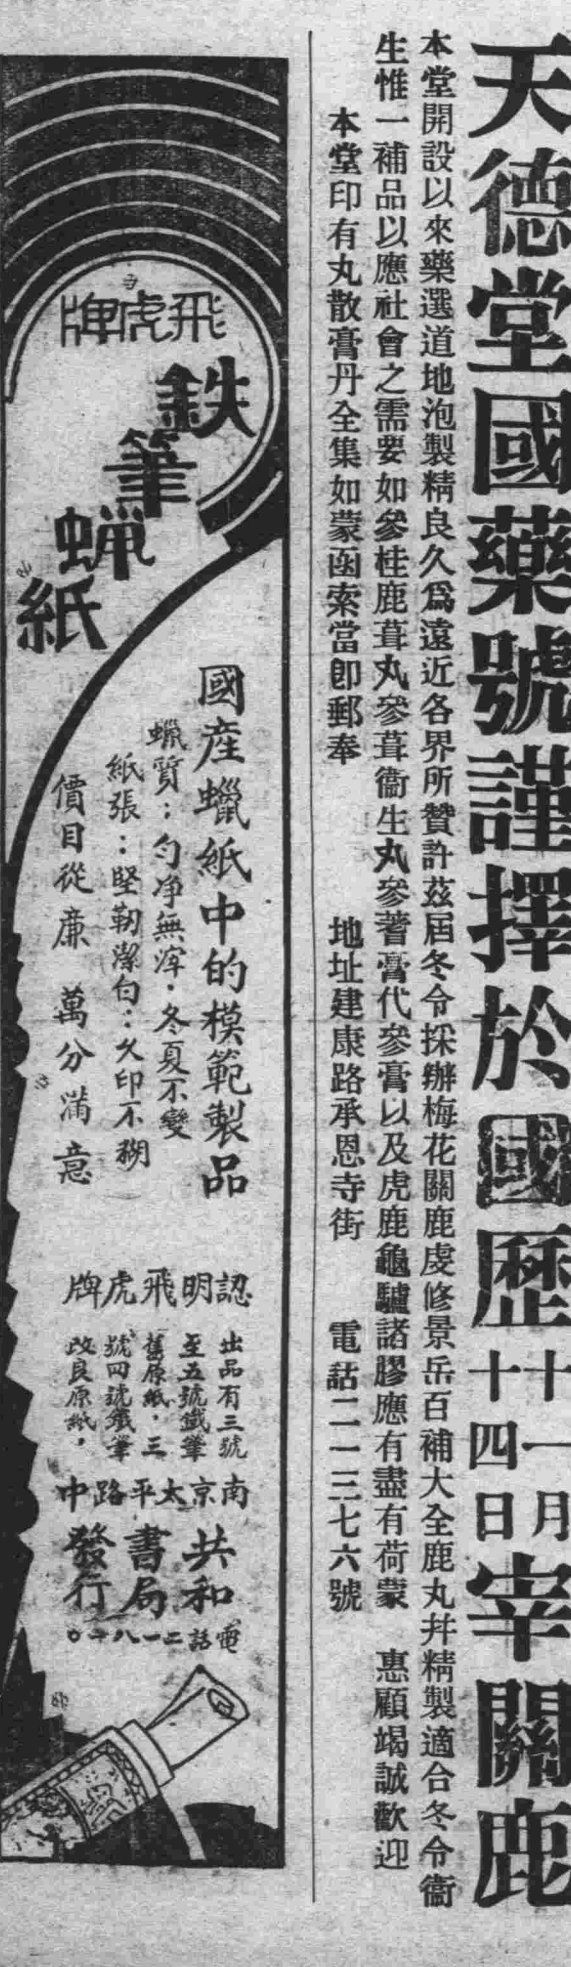 天德堂國藥號謹擇於國歷十一月十四日宰關鹿
本堂開設以來藥選道地泡製精良久爲遠近各界所贊許茲屆冬令採辦梅花關鹿虔修景岳百補大全鹿丸幷精製適合冬令衞
生惟一補品以應社會之需要如參桂鹿茸丸參茸衞生丸參蓍膏代參膏以及虎鹿龜驢諸膠應有盡有荷蒙　惠顧竭誠歡迎
本堂印有丸散膏丹全集如蒙函索當卽郵奉　地址建康路承恩寺街　電話二一三七六號
飛虎牌
鉄筆蠟紙
國産蠟紙中的模範製品
蠟質：勻净無滓．冬夏不變
紙張：堅韌潔白：久印不糊
價目從廉　萬分滿意
認明飛虎牌
出品有三號
至五號鐵筆
舊原紙．三
號四號鐵筆
改良原紙．
南京太平路中
共和
書局
發行
電話二一八十〇